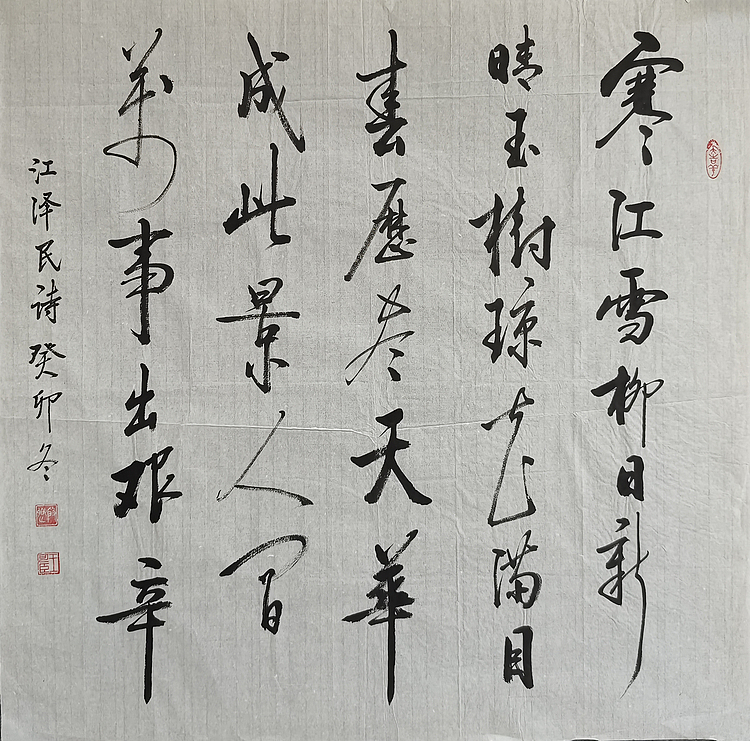 寒江雪柳日新
晴玉樹琼花满目
春歷尽天華
成此景人间
萬事出艰辛
江泽民诗 癸卯冬